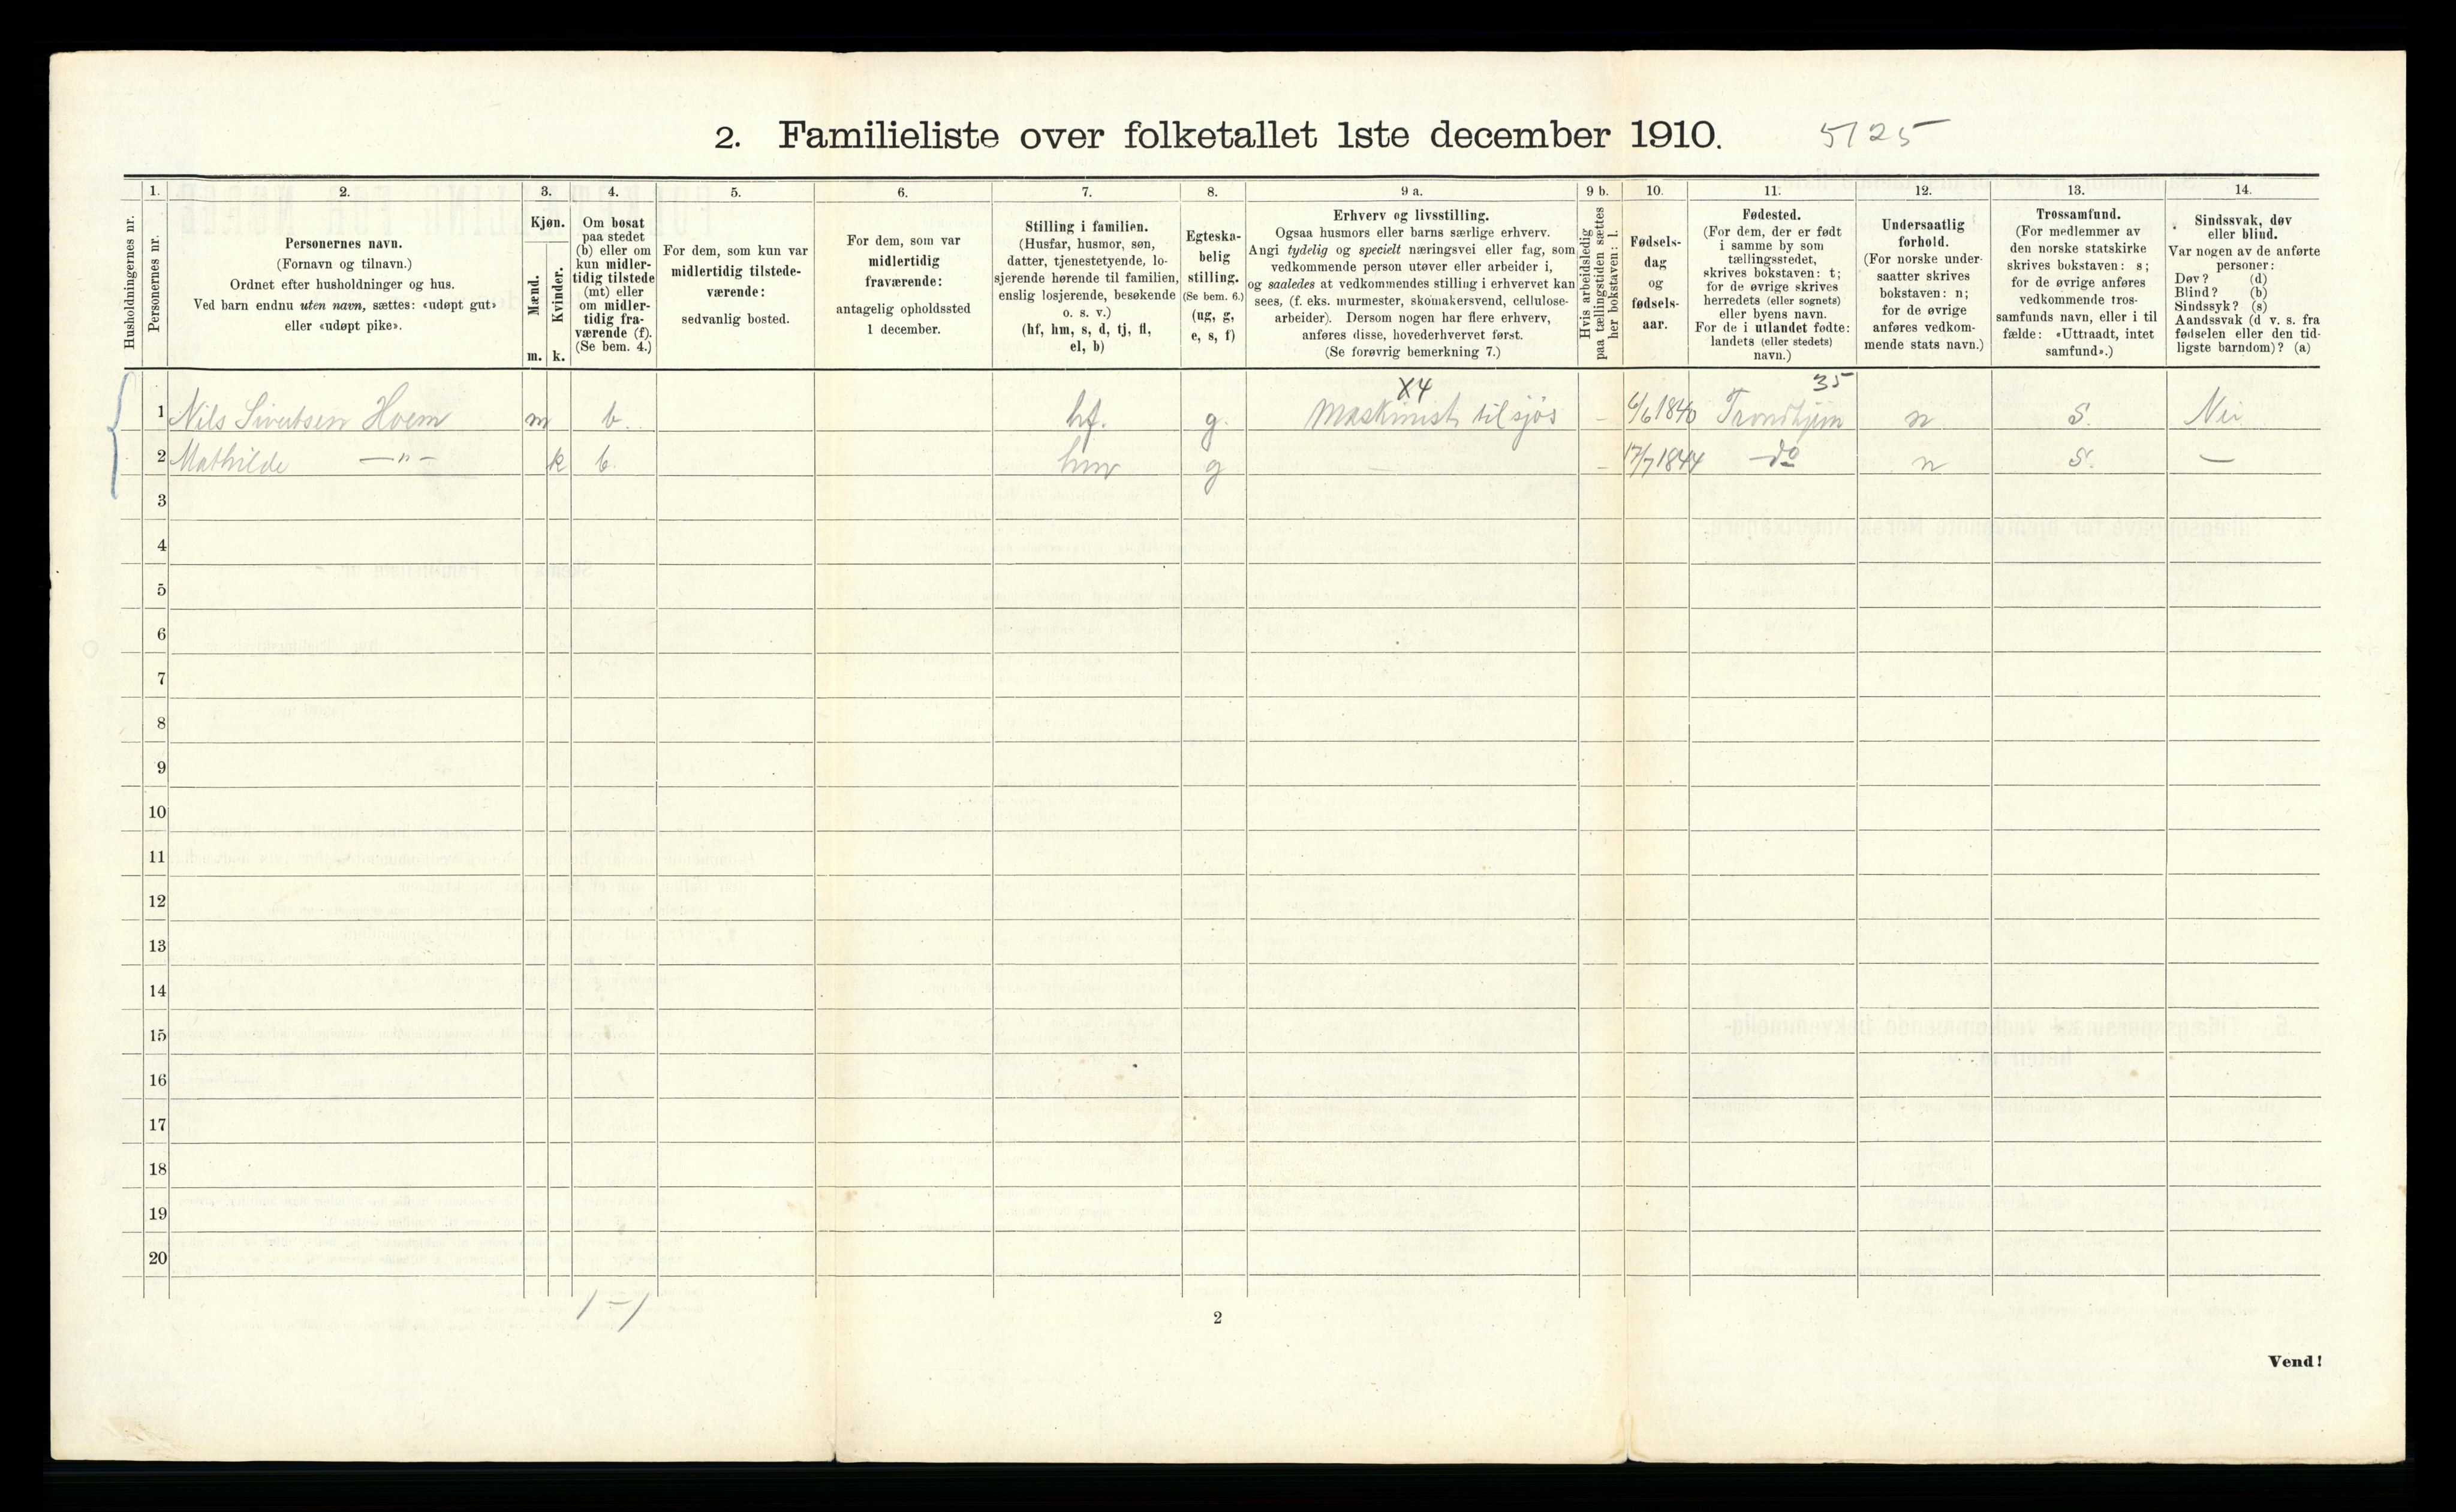 2. Familieliste over folketallet 1ste december 1910. 5125
Husholdningernes nr.
1.
Personernes nr.
2.
Personernes navn.
(Fornavn og tilnavn.)
Ordnet efter husholdninger og hus.
Ved barn endnu uten navn, sættes: «udøpt gut»
eller «udøpt pike».
3.
Kjøn.
Mænd.
Kvinder.
m. k.
4.
Om bosat
paa stedet
(b) eller om
kun midler-
tidig tilstede
(mt) eller
om midler-
tidig fra-
værende (f).
(Se bem. 4.)
5.
For dem, som kun var
midlertidig tilstede-
værende:
sedvanlig bosted.
6.
For dem, som var
midlertidig
fraværende:
antagelig opholdssted
1 december.
7.
Stilling i familien.
(Husfar, husmor, søn,
datter, tjenestetyende, lo-
sjerende hørende til familien,
enslig losjerende, besøkende
o. s. v.)
(hf, hm, s, d, tj, fl,
el, b)
8.
Egteska-
belig
stilling.
(Se bem. 6.)
(ug, g,
e, s, f)
9 a.
Erhverv og livsstilling.
Ogsaa husmors eller barns særlige erhverv.
Angi tydelig og specielt næringsvei eller fag, som
vedkommende person utøver eller arbeider i,
og saaledes at vedkommendes stilling i erhvervet kan
sees, (f. eks. murmester, skomakersvend, cellulose-
arbeider). Dersom nogen har flere erhverv,
anføres disse, hovederhvervet først.
(Se forøvrig bemerkning 7.)
9 b.
Hvis arbeidsledig
paa tællingstiden sættes
her bokstaven: l.
10.
Fødsels-
dag
og
fødsels-
aar.
11.
Fødested.
(For dem, der er født
i samme by som
tællingsstedet,
skrives bokstaven: t;
for de øvrige skrives
herredets (eller sognets)
eller byens navn.
For de i utlandet fødte:
landets (eller stedets)
navn.)
12.
Undersaatlig
forhold.
(For norske under-
saatter skrives
bokstaven: n;
for de øvrige
anføres vedkom-
mende stats navn.)
13.
Trossamfund.
(For medlemmer av
den norske statskirke
skrives bokstaven: s;
for de øvrige anføres
vedkommende tros-
samfunds navn, eller i til
fælde: «Uttraadt, intet
samfund».)
14.
Sindssvak, døv
eller blind.
Var nogen av de anførte
personer:
Døv? (d)
Blind? (b)
Sindssyk? (s)
Aandssvak (d v. s. fra
fødselen eller den tid-
ligste barndom)? (a)
X4 35
1 Nils Sivertsen Hoem m b. hf. g. Maskinist til sjøs – 6/6 1840 Trondhjem n S. Nei
2 Mathilde —"— k b. hm g — – 17/7 1844 do n S. —
3
4
5
6
7
8
9
10
11
12
13
14
15
16
17
18
19
20
1 – 1
2
Vend!